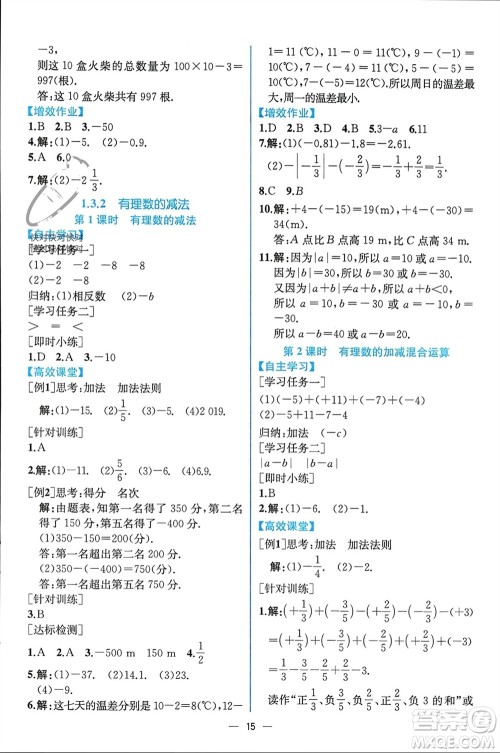 －3,
则这 10 盒火柴的总数量为 100×10－3＝
997(根).
答:这 10 盒火柴共有 997 根.
【增效作业】
1.B 2.B 3.－50
4.解:(1)－5. (2)－0.9.
5.A 6.0
7.解:(1)－2. (2)－2 1/3.
1.3.2 有理数的减法
第 1 课时 有理数的减法
【自主学习】
[学习任务一]
(1)－2 －2 －8 －8
归纳:(1)相反数 (2)－b
[学习任务二]
＞ ＝ ＜
[即时小练]
1.D 2.A
【高效课堂】
[例1]思考:加法 加法法则
解:(1)－15. (2)1/5. (3)－4. (4)2 019.
[针对训练]
1.A
2.解:(1)－11. (2)5/6. (3)－6. (4)13.
[例2]思考:得分 名次
解:由题表,知第一名得了 350 分,第二名
得了 150 分,第五名得了－400 分.
(1)350－150＝200(分).
(2)350－(－400)＝750(分).
答:第一名超出第二名 200 分.
第一名超出第五名 750 分.
[针对训练]
3.B
[达标检测]
1.A 2.A 3.－500 m 150 m 4.7
5.解:(1)3. (2)13. (3)－17. (4)－2/3.
6.解:这七天的温差分别是 10－2＝8(℃),12－
1＝11(℃),11－0＝11(℃),9－(－1)＝10(℃),
7－(－4)＝11(℃),5－(－5)＝10(℃),
7－(－5)＝12(℃).所以周日的温差最
大,周一的温差最小.
【增效作业】
1.D 2.D 3.A 4.B 5.3－a 6.11
7.解:(1)－13.
(2)－|－1/3|－(－2/3)＝－1/3＋2/3＝1/3.
8.C 9.B
10.解:(1)＋4－(－15)＝19(m).
(2)＋4－(－30)＝34(m).
答:A 点比 B 点高 19 m,比 C 点高 34 m.
11.解:因为|a|＝8,所以 a＝±8.
因为|b|＝10,所以 b＝±10.
因为|a＋b|≠a＋b,所以 a＋b＜0.
所以 a＝8,b＝－10 或 a＝－8,b＝－10.
所以 a－b＝18 或 2.
第 2 课时 有理数的加减混合运算
【自主学习】
[学习任务一]
(1)(－4)＋(－15)＋(－7)＋(＋2)
(2)－5－4＋11
归纳:加法 (－c)
[学习任务二]
|a－b| |a－b|
[即时小练]
1.B
2.解:(1)－6. (2)－1.
【高效课堂】
[例1]思考:加法 加法法则
解:(1)－1/4. (2)－13.
[针对训练]
1.解:＝(＋1/3)＋(－3/5)＋(－2/3)＋(＋2/5)
＋(－1/3)
＝1/3－3/5－2/3＋2/5－1/3
读作“正1/3、负3/5、负2/3、正2/5、负1/3的和”或
15